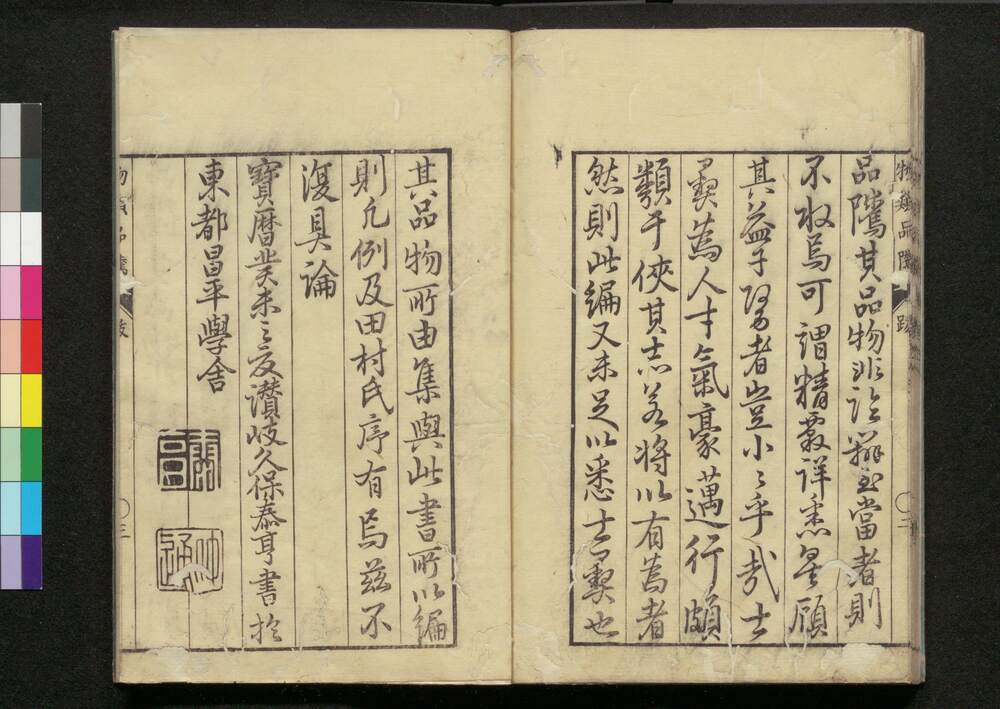 品隲其品物非詮辯至當者則
不収焉可謂精覈詳悉矣顧
其益于醫者豈小〻乎哉士
彛為人才氣豪邁行頗
類于俠其志若將以有為者
然則此編又未足以悉士彛也
其品物所由集與此書所以編
則凡例及田村氏序有焉兹不
復具論
寶暦癸未之夏讃岐久保泰亨書於
東都昌平學舎
物類品隲
跋